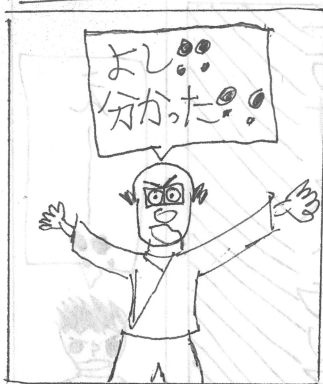 よし!!
分かった!!